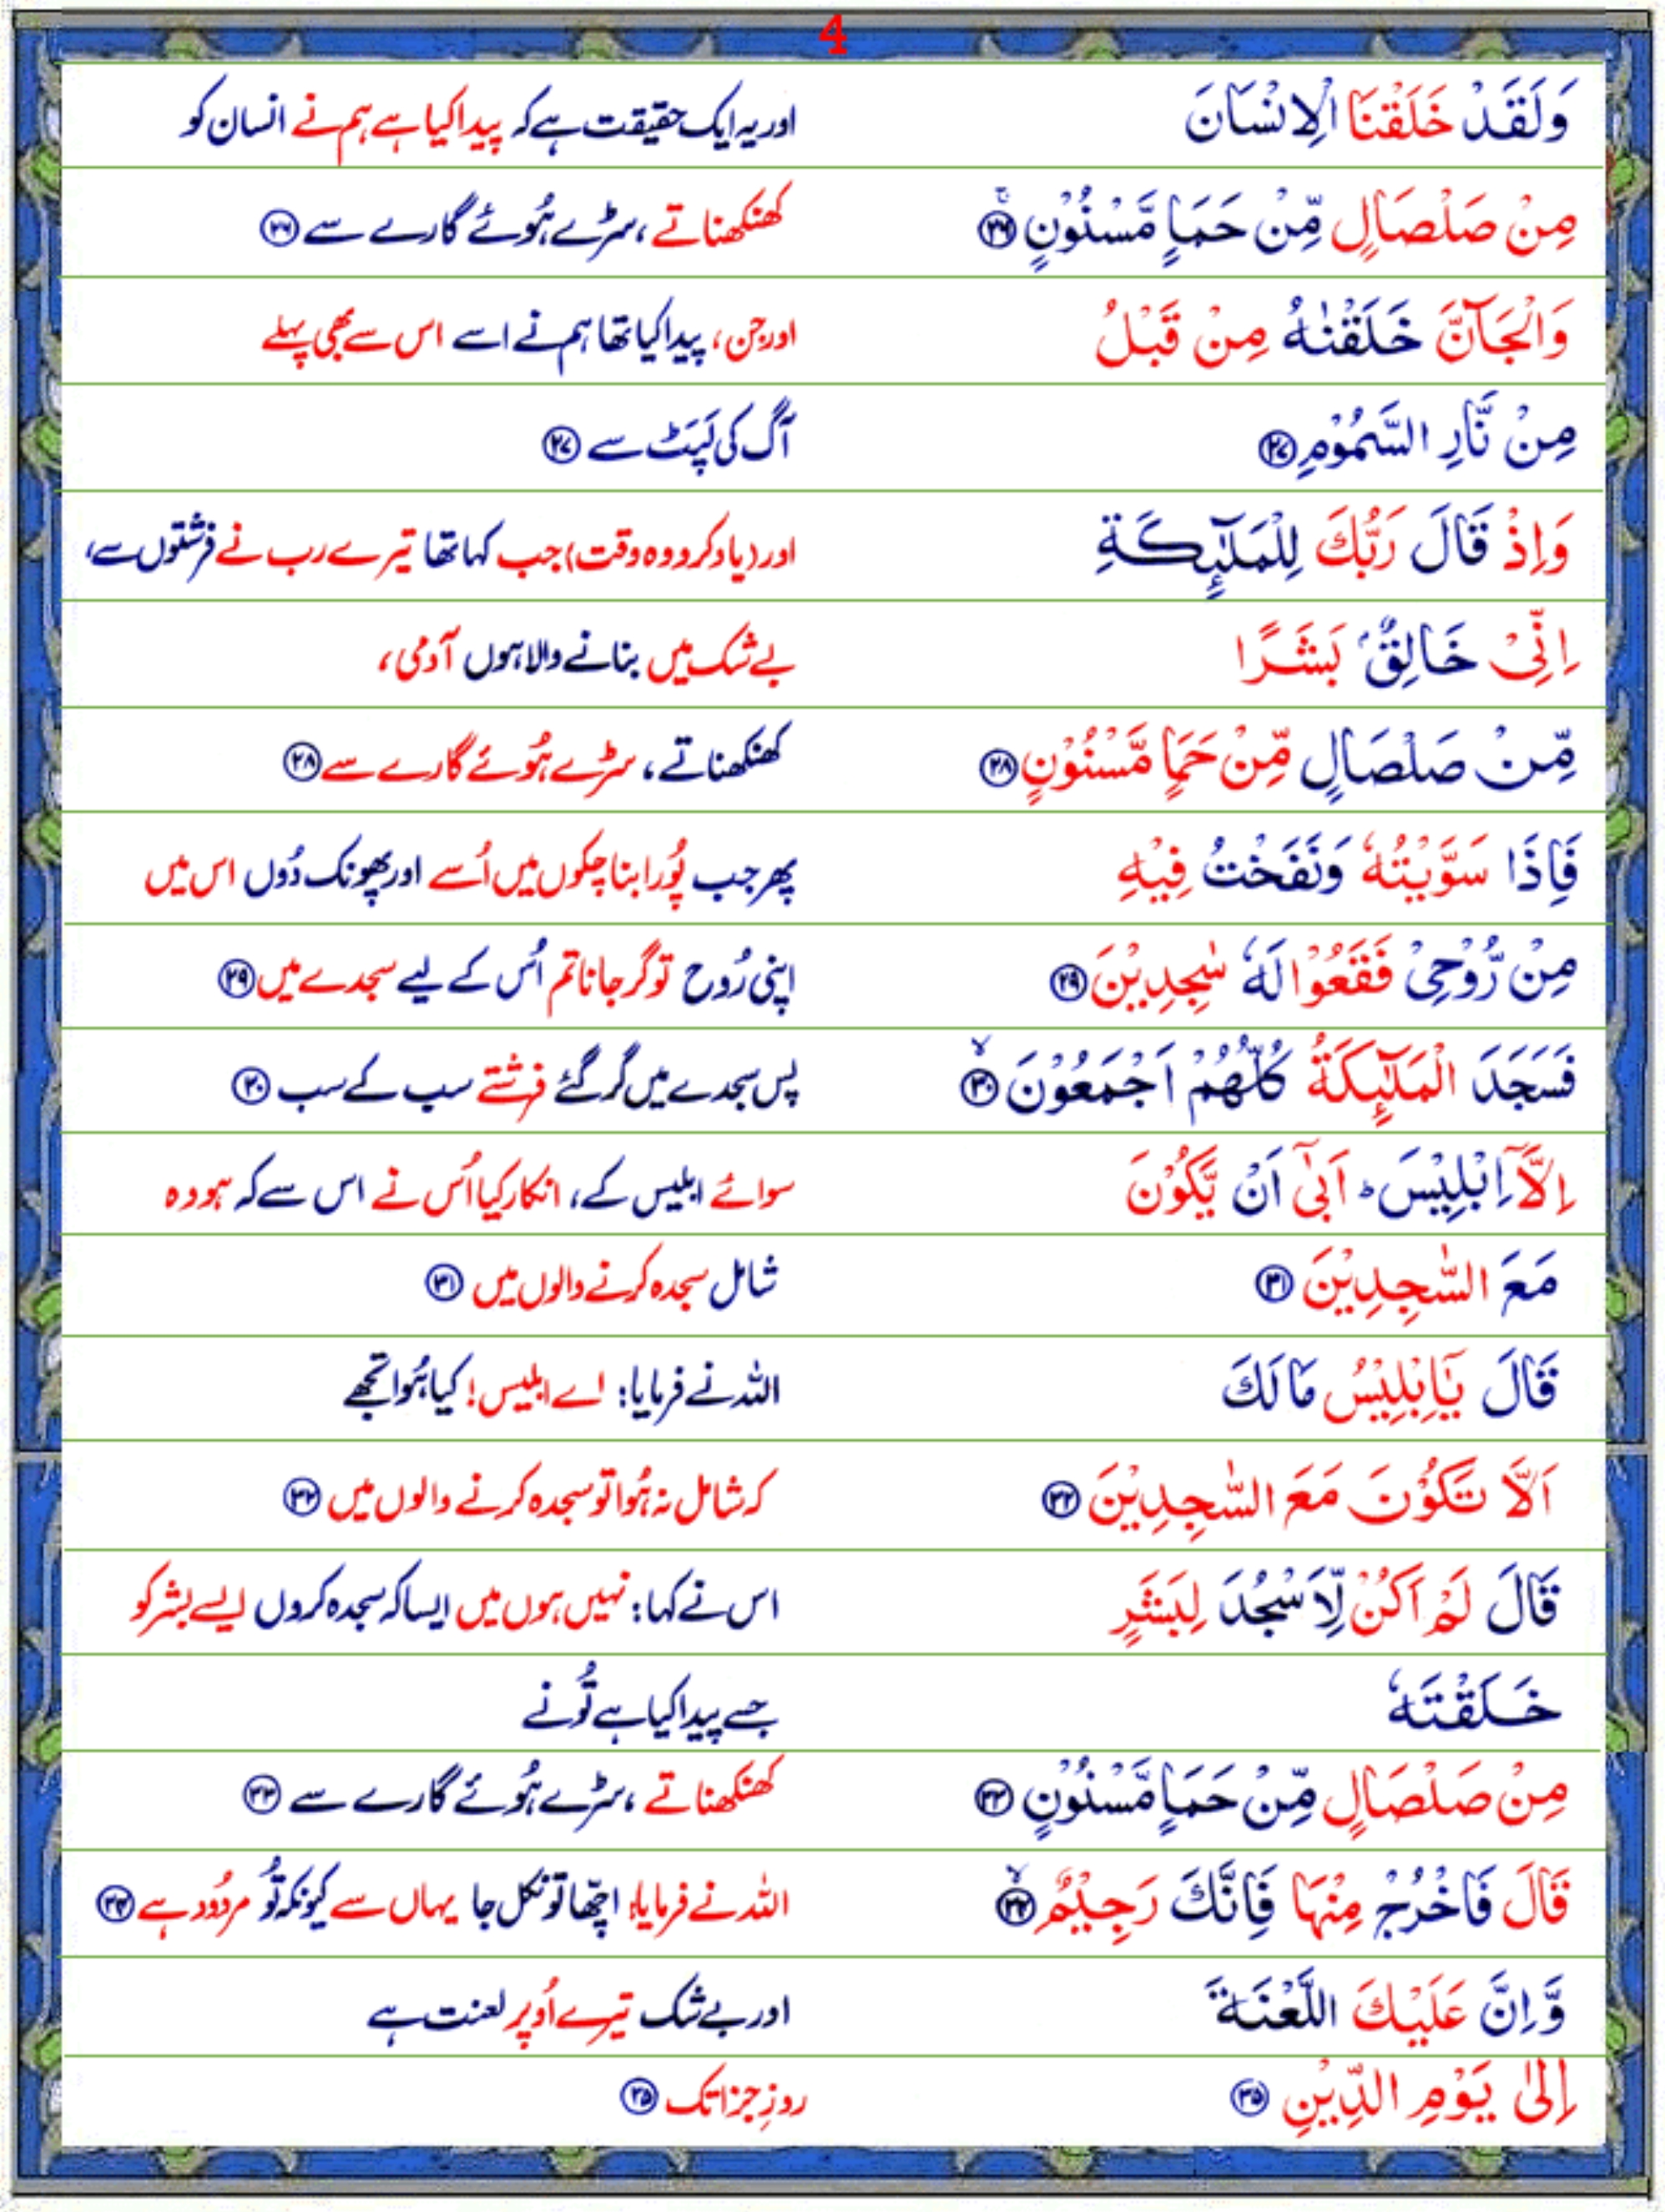 4
وَلَقَدْ خَلَقْنَا الْاِنْسَانَ اور یہ ایک حقیقت ہے کہ پیدا کیا ہے ہم نے انسان کو
مِنْ صَلْصَالٍ مِّنْ حَمَاٍ مَّسْنُوْنٍ ۚ۝۲۶ کھنکھناتے، سڑے ہُوئے گارے سے ۝۲۶
وَالْجَآنَّ خَلَقْنٰهُ مِنْ قَبْلُ اور جن، پیدا کیا تھا ہم نے اسے اس سے بھی پہلے
مِنْ نَّارِ السَّمُوْمِ ۝۲۷ آگ کی لَپَٹ سے ۝۲۷
وَاِذْ قَالَ رَبُّكَ لِلْمَلٰٓئِكَةِ اور (یاد کرو وہ وقت) جب کہا تھا تیرے رب نے فرشتوں سے،
اِنِّیْ خَالِقٌۢ بَشَرًا بے شک میں بنانے والا ہوں آدمی،
مِّنْ صَلْصَالٍ مِّنْ حَمَاٍ مَّسْنُوْنٍ ۝۲۸ کھنکھناتے، سڑے ہُوئے گارے سے ۝۲۸
فَاِذَا سَوَّيْتُهٗ وَنَفَخْتُ فِيْهِ پھر جب پُورا بنا چکوں میں اُسے اور پھونک دُوں اس میں
مِنْ رُّوْحِیْ فَقَعُوْا لَهٗ سٰجِدِيْنَ ۝۲۹ اپنی رُوح تو گر جانا تم اُس کے لیے سجدے میں ۝۲۹
فَسَجَدَ الْمَلٰٓئِكَةُ كُلُّهُمْ اَجْمَعُوْنَ ۙ۝۳۰ پس سجدے میں گر گئے فرشتے سب کے سب ۝۳۰
اِلَّاۤ اِبْلِيْسَ ؕ اَبٰۤی اَنْ يَّكُوْنَ سوائے ابلیس کے، انکار کیا اُس نے اس سے کہ ہو وہ
مَعَ السّٰجِدِيْنَ ۝۳۱ شامل سجدہ کرنے والوں میں ۝۳۱
قَالَ يٰۤاِبْلِيْسُ مَا لَكَ اللہ نے فرمایا: اے ابلیس! کیا ہُوا تجھے
اَلَّا تَكُوْنَ مَعَ السّٰجِدِيْنَ ۝۳۲ کہ شامل نہ ہُوا تو سجدہ کرنے والوں میں ۝۳۲
قَالَ لَمْ اَكُنْ لِّاَسْجُدَ لِبَشَرٍ اس نے کہا: نہیں ہوں میں ایسا کہ سجدہ کروں ایسے بشر کو
خَلَقْتَهٗ جسے پیدا کیا ہے تُو نے
مِنْ صَلْصَالٍ مِّنْ حَمَاٍ مَّسْنُوْنٍ ۝۳۳ کھنکھناتے، سڑے ہُوئے گارے سے ۝۳۳
قَالَ فَاخْرُجْ مِنْهَا فَاِنَّكَ رَجِيْمٌ ۙ۝۳۴ اللہ نے فرمایا: اچھّا تو نکل جا یہاں سے کیونکہ تُو مردُود ہے ۝۳۴
وَّاِنَّ عَلَيْكَ اللَّعْنَةَ اور بے شک تیرے اُوپر لعنت ہے
اِلٰی يَوْمِ الدِّيْنِ ۝۳۵ روزِ جزا تک ۝۳۵